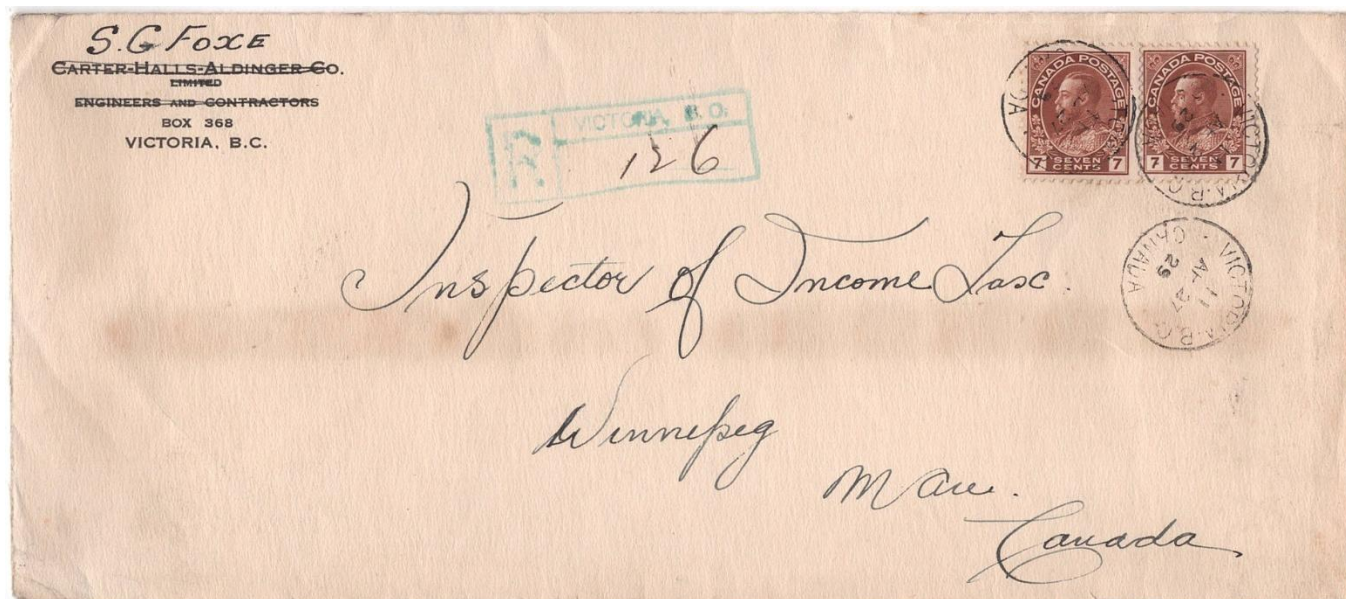 S.G Foxe
CARTER-HALLS-ALDINGER CO.
LIMITED
ENGINEERS AND CONTRACTORS
BOX 368
VICTORIA, B.C.
R
VICTORIA, B.C.
126
CANADA POSTAGE
7 SEVEN CENTS 7
CANADA POSTAGE
7 SEVEN CENTS 7
VICTORIA·B.C.
Inspector of Income Tax.
VICTORIA·B.C.
11
AP 27
29
CANADA
Winnipeg
Man.
Canada